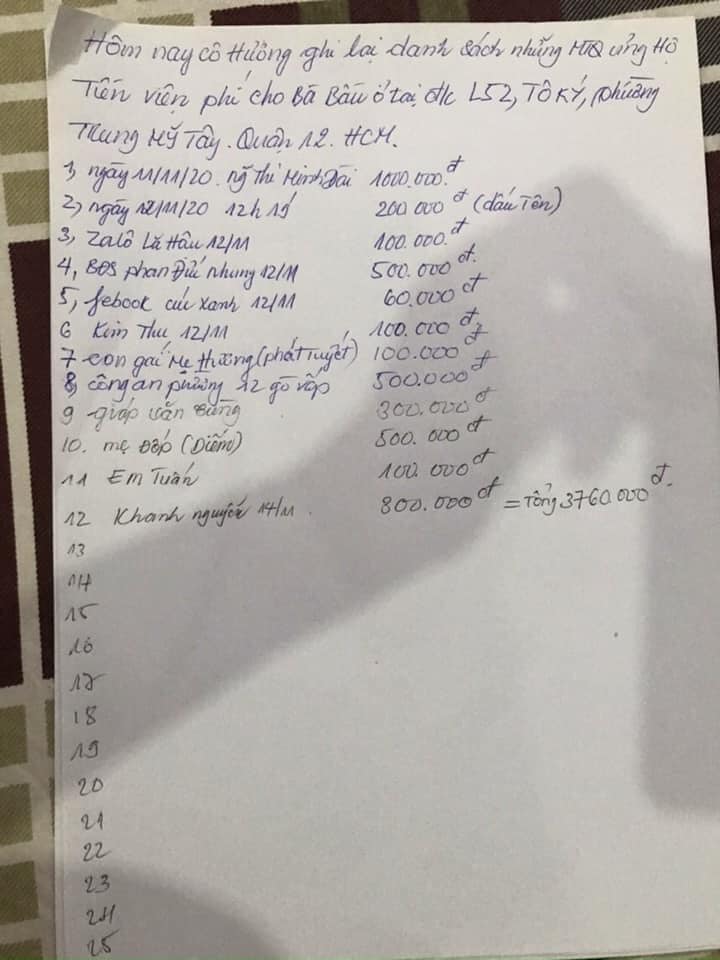 Hôm nay cô Hường ghi lại danh sách những MTQ ủng Hộ
Tiền viện phí cho Bà Bầu ở tại đ/c L52, TÔ KÝ, phường
Trung Mỹ Tây. Quận 12. HCM.
1, ngày 11/11/20. ng thi Minh Đài 1000.000.đ
2, ngày 12/11/20 12h 19 200 000 đ (dấu Tên)
3, Zalô Lã Hậu 12/11 100.000.đ
4, BOS phan Đức nhung 12/11 500.000 đ.
5, febook cúc xanh 12/11 60.000 đ
6 Kim Thu 12/11 100.000 đ
7 con gái Mẹ Hương (phát Tuyết) 100.000 đ
8, công an phường 12 gò vấp 500.000 đ
9 giáp văn 300.000 đ
10. mẹ Đốp (Diễm) 500.000 đ
11 Em Tuấn 100.000 đ
12 Khanh nguyễn 14/11. 800.000 đ = Tổng 3760.000 đ.
13
14
15
16
17
18
19
20
21
22
23
24
25